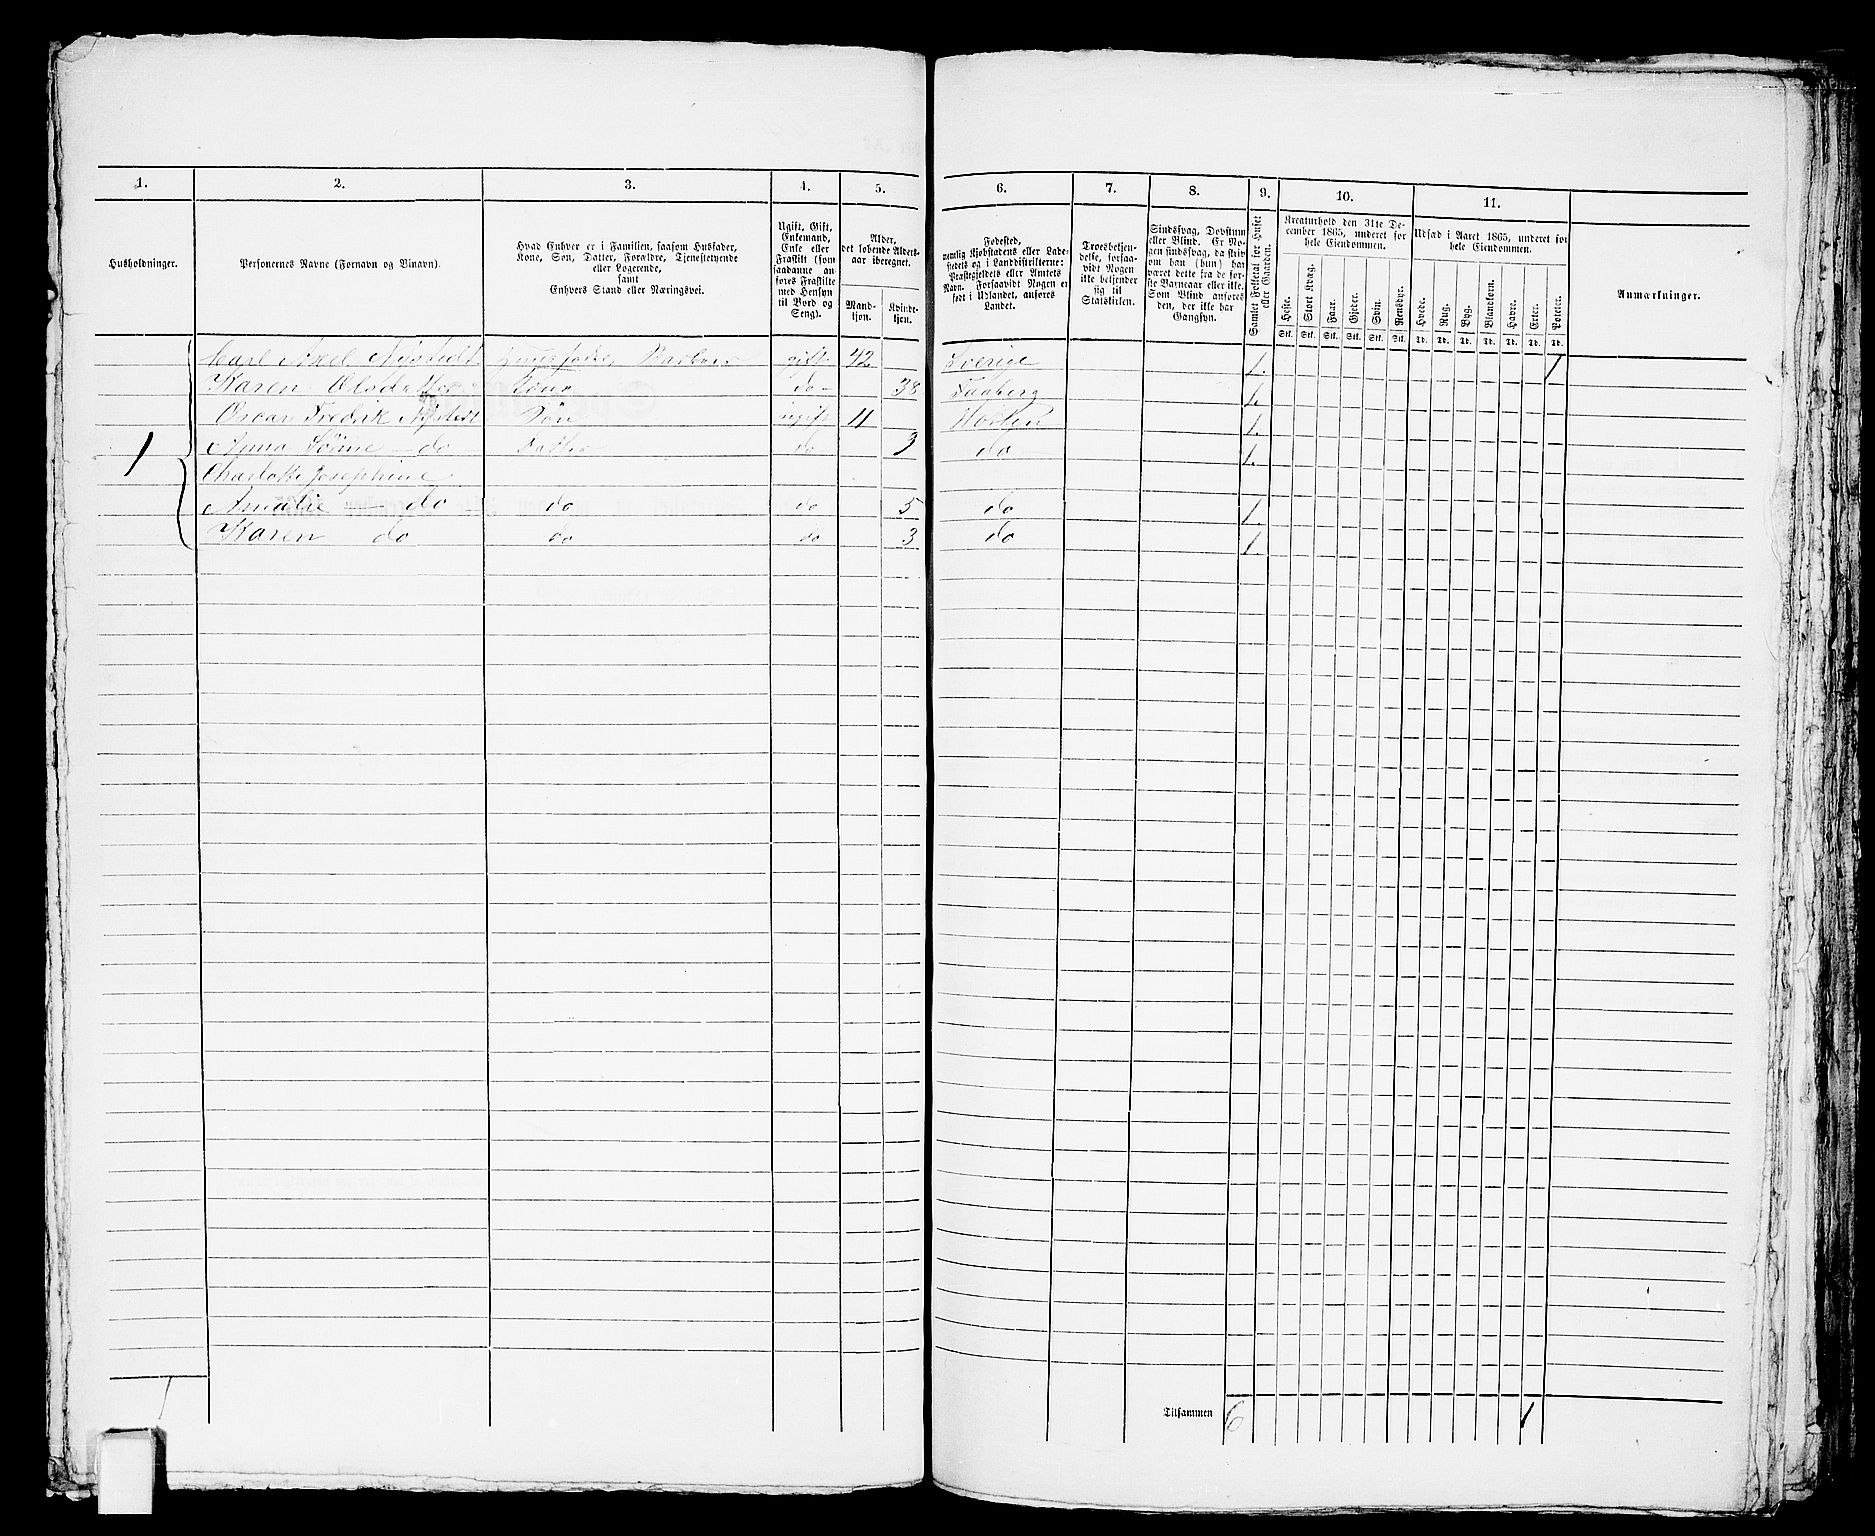 1. 2. 3. 4. 5. 6. 7. 8. 9. 10. 11.
Husholdninger.
Personernes Navne (Fornavn og Binavn).
Hvad Enhver er i Familien, saasom Husfader,
Kone, Søn, Datter, Forældre, Tjenestetyende
eller Logerende,
samt
Enhvers Stand eller Næringsvei.
Ugift, Gift,
Enkemand,
Enke eller
Fraskilt (som
saadanne an-
føres Fraskilte
med Hensyn
til Bord og
Seng).
Alder,
det løbende Alders-
aar iberegnet.
Mand-
kjøn.
Kvinde-
kjøn.
Fødested,
nemlig Kjøbstadens eller Lade-
stedets og i Landdistrikterne:
Præstegjeldets eller Amtets
Navn. Forsaavidt Nogen er
født i Udlandet, anføres
Landet.
Troesbekjen-
delse, forsaa-
vidt Nogen
ikke bekjender
sig til
Statskirken.
Sindssvag, Døvstum
eller Blind. Er No-
gen sindssvag, da skriv
om han (hun) har
været dette fra de før-
ste Barneaar eller ikke.
Som Blind anføres
den, der ikke har
Gangsyn.
Samlet Folketal for Huset
eller Gaarden.
Kreaturhold den 31te De-
cember 1865, anføres for
hele Eiendommen.
Heste. Stort Kvæg. Faar. Gjeder. Svin. Rensdyr.
Stk. Stk. Stk. Stk. Stk. Stk.
Udsæd i Aaret 1865, anføres for
hele Eiendommen.
Hvede. Rug. Byg. Blandkorn. Havre. Erter. Poteter.
Td. Td. Td. Td. Td. Td. Td.
Anmærkninger.
Carl Axel Nystedt gift 42 Sverige 1. 1
Karen Olsdatter Kone do 38 Faaberg 1.
Oscar Fredrik Nystedt Søn ugift 11 Horten 1.
1 Anna do Datter do do 1.
Charlotte Josephine
Amalie do do do 5 do 1.
Karen do do do 3 do 1.
Tilsammen 6 1